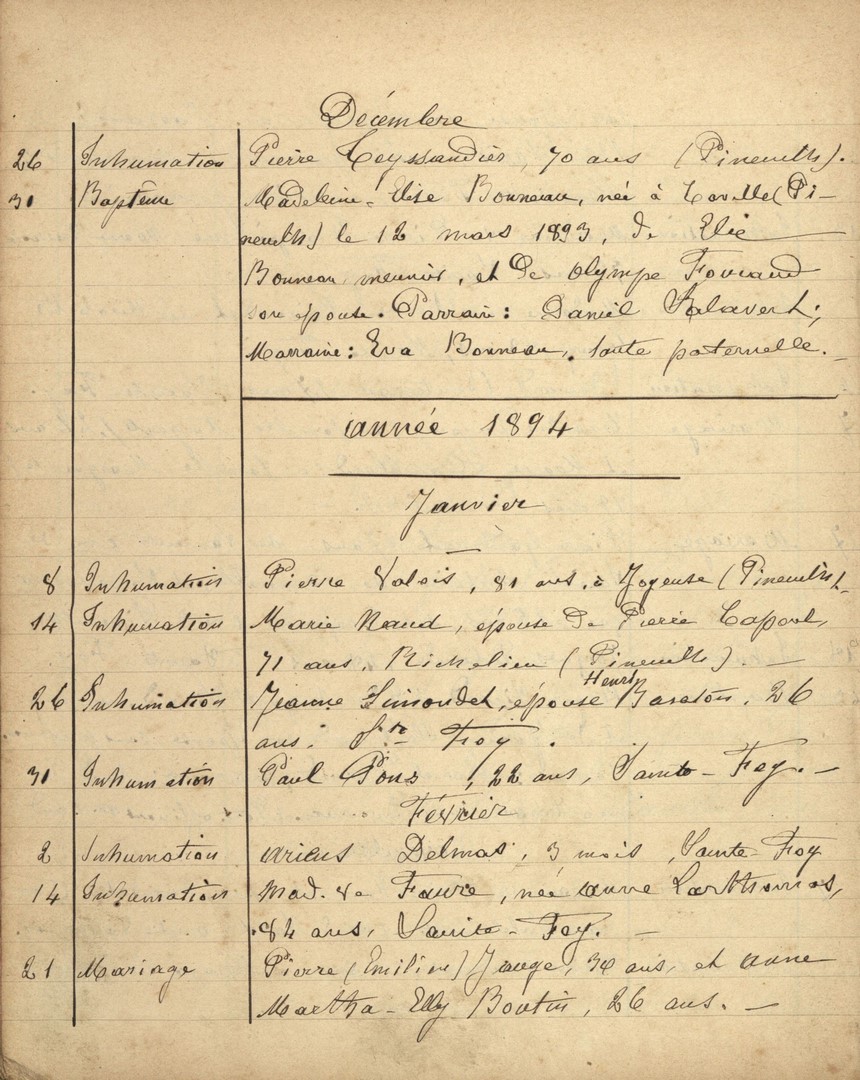 Décembre
26 Inhumation Pierre Teyssandier, 70 ans (Pineuilh).
31 Baptême Madeleine-Elise Bonneau, née à (Pi-
neuilh) le 12 mars 1893, de Elie
Bonneau meunier, et de Olympe Foucaud
son épouse. Parrain: Daniel Salavert;
Marraine: Eva Bonneau, tante paternelle. -
année 1894
Janvier
8 Inhumation Pierre Valois, 81 ans, à Joyeuse (Pineuilh).
14 Inhumation Marie Naud, épouse de Pierre
71 ans, Richelieu (Pineuilh). -
Henri
26 Inhumation Jeanne Simondet, épouse Baraton, 26
ans. Ste Foy.
31 Inhumation Paul Pons, 22 ans, Sainte-Foy. -
Février
2 Inhumation Delmas, 3 mois, Sainte-Foy
14 Inhumation Mad. Ve Faure, née anne Larthomas,
84 ans, Sainte-Foy. -
21 Mariage Pierre (Emilien) Jauge, ans, et anne
Martha-Elly Boutin, 26 ans. -